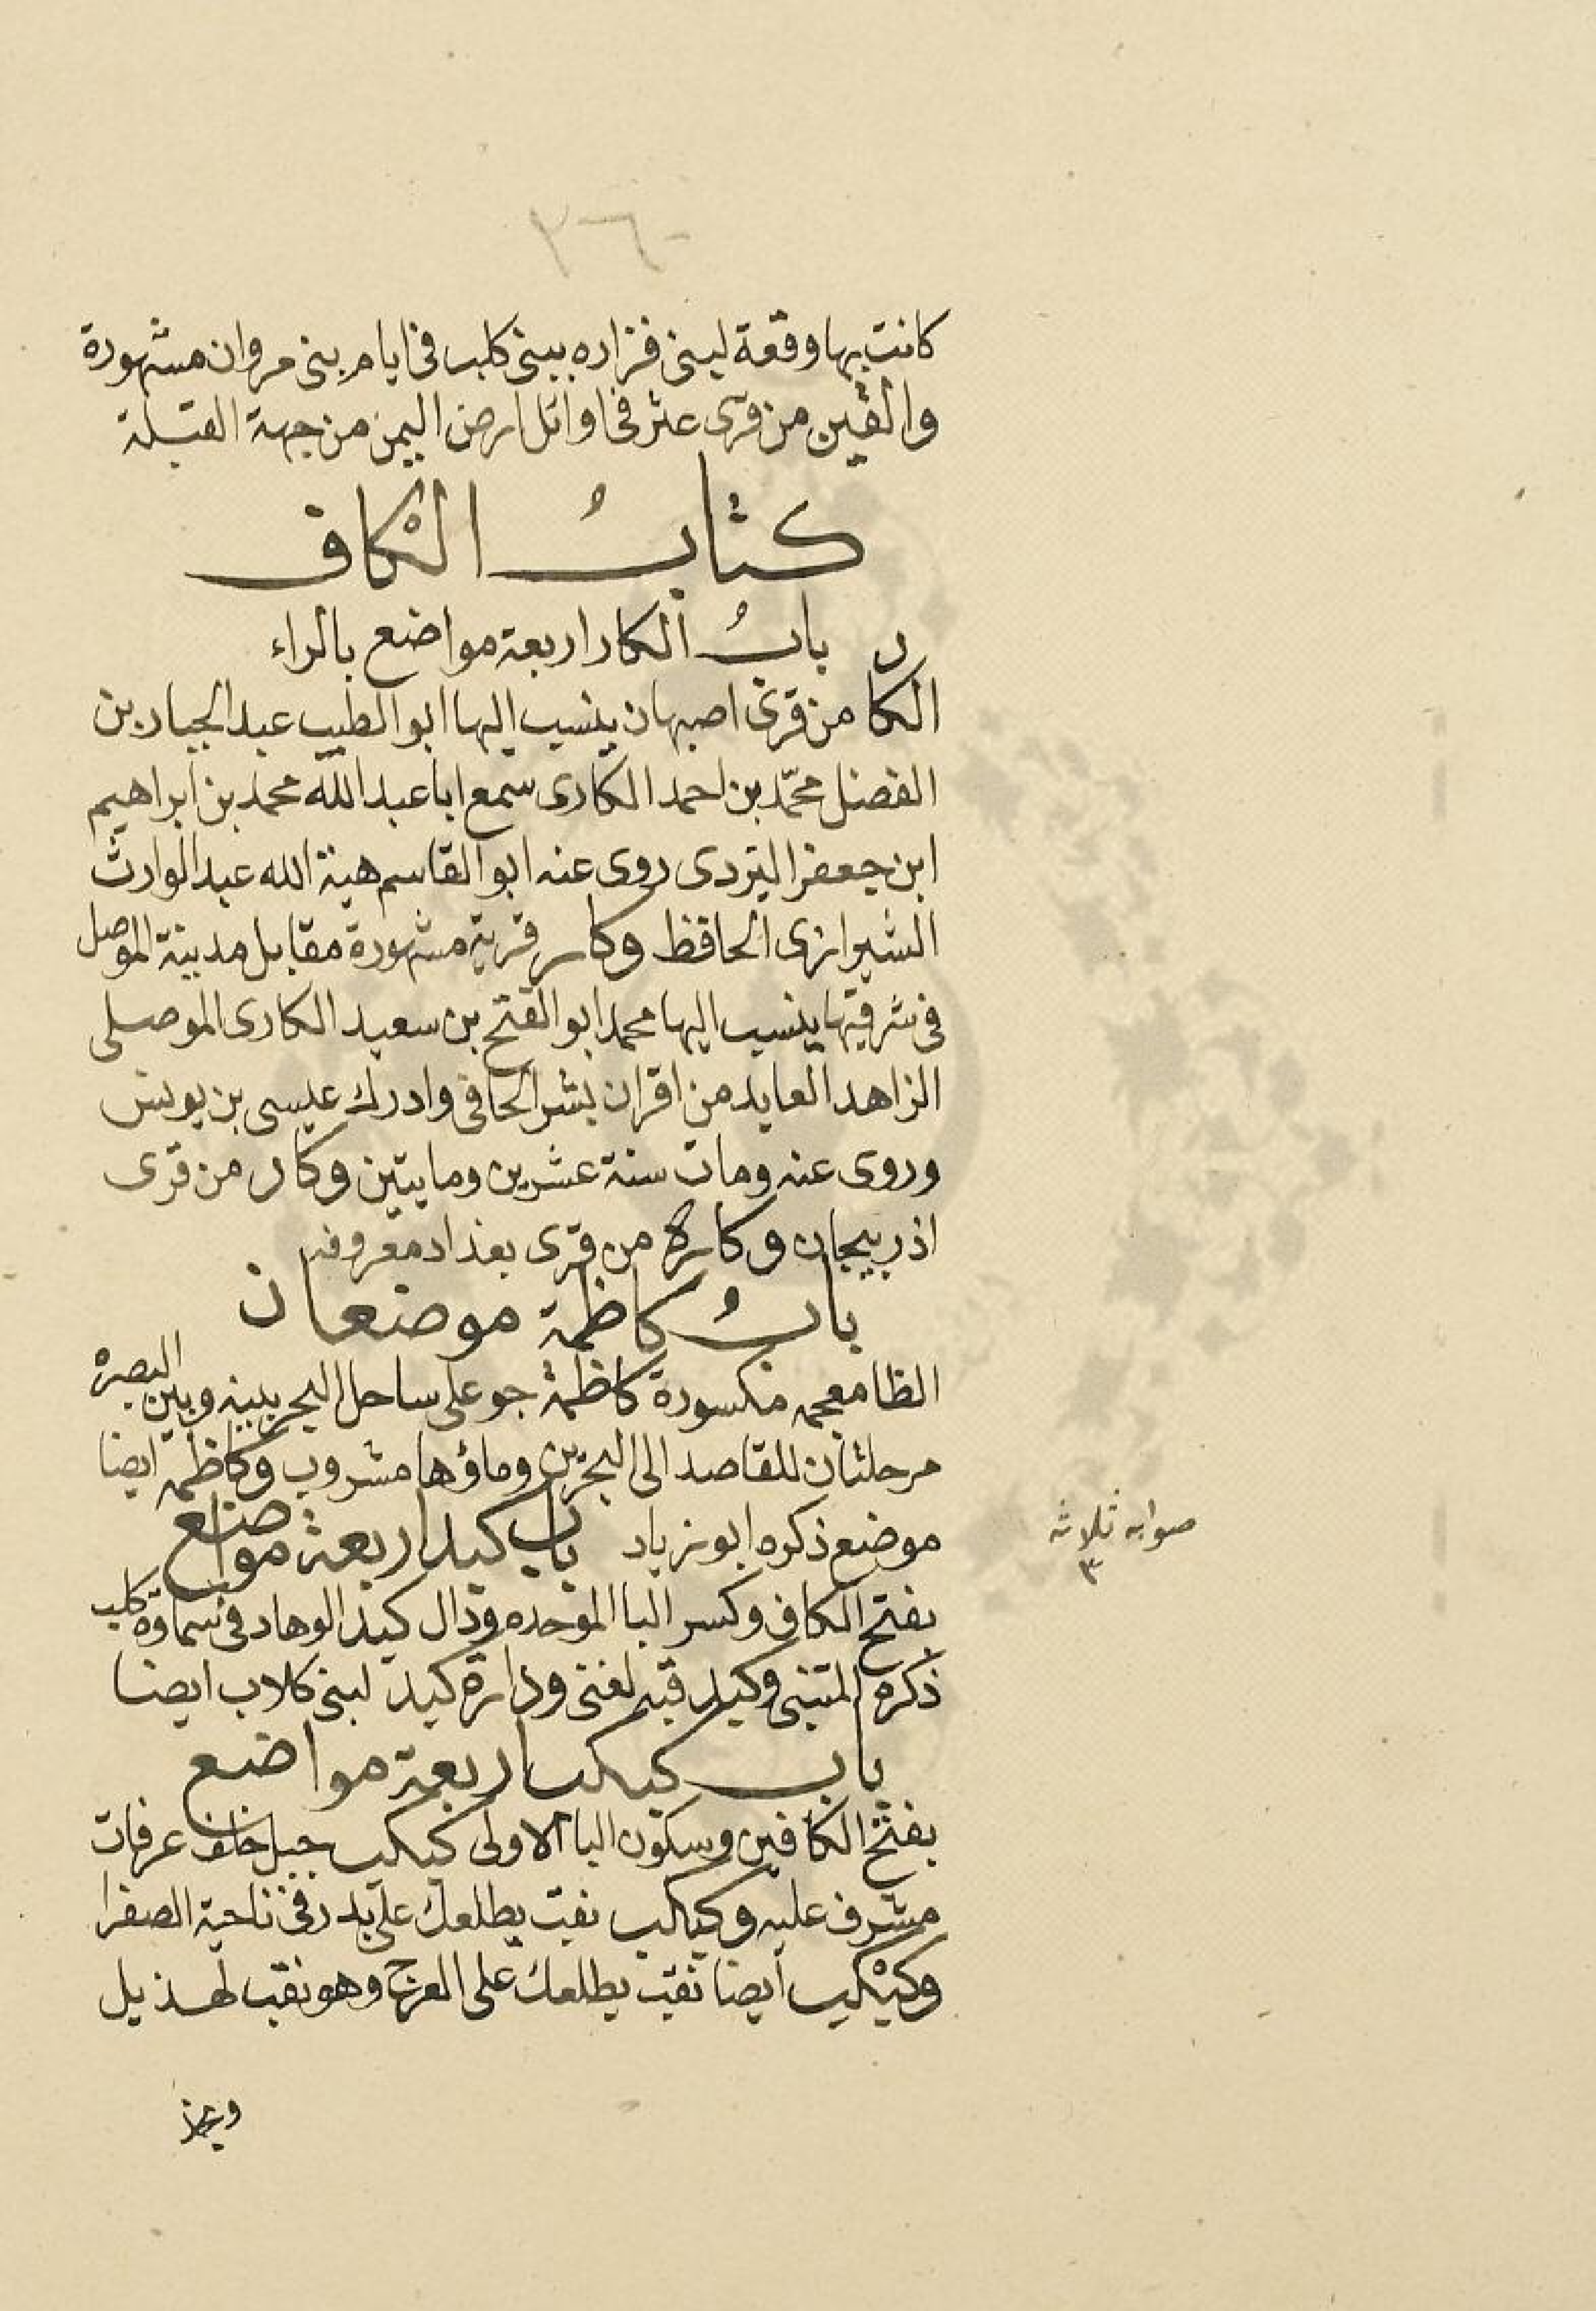 ٣٦٠
كانت بها وقعة لبنى فزاره ببنى كلب فى ايام بنى مروان مشهورة
والقين من قرى عثر فى اوائل ارض اليمن من جهة القبلة
كتابُ الكاف
بابُ الكار اربعة مواضع بالراء
الكار من قرى اصبهان ينسب اليها ابو الطيب عبد الجبار بن
الفضل محمّد بن احمد الكارى سمع ابا عبد الله محمد بن ابراهيم
ابن جعفر اليزدى روى عنه ابو القاسم هبة الله عبد الوارث
الشيرازى الحافظ وكار قرية مشهورة مقابل مدينة الموصل
فى شرقيها ينسب اليها محمد ابو الفتح بن سعيد الكارى الموصلى
الزاهد العابد من اقران بشر الحافى وادرك عيسى بن يونس
وروى عنه ومات سنة عشرين ومايتين وكار من قرى
اذربيجان وكارة من قرى بغداد معروفه
بابُ كاظمة موضعان
الظا معجمه مكسورة كاظمة جو على ساحل البحر بينه وبين البصرة
مرحلتان للقاصد الى البحرين وماؤها مشروب وكاظمه ايضا
موضع ذكره ابو زياد باب كبد اربعة مواضع
صوابه ثلاثه
٣
بفتح الكاف وكسر البا الموحده ودال كبد الوهاد فى سماوة كلب
ذكره المتنبى وكبد قبه لغنى ودارة كبد لبنى كلاب ايضا
باب كبكب اربعة مواضع
بفتح الكافين وسكون البا الاولى كبكب جبل خلف عرفات
مشرف عليه وكبكب نقب يطلعك على بدر فى ناحية الصفرا
وكبْكب ايضا نقب يطلعك على العرج وهو نقب لهذيل